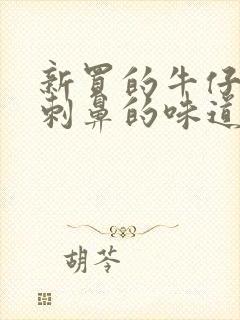 新買的牛仔
刺鼻的味道
胡苓